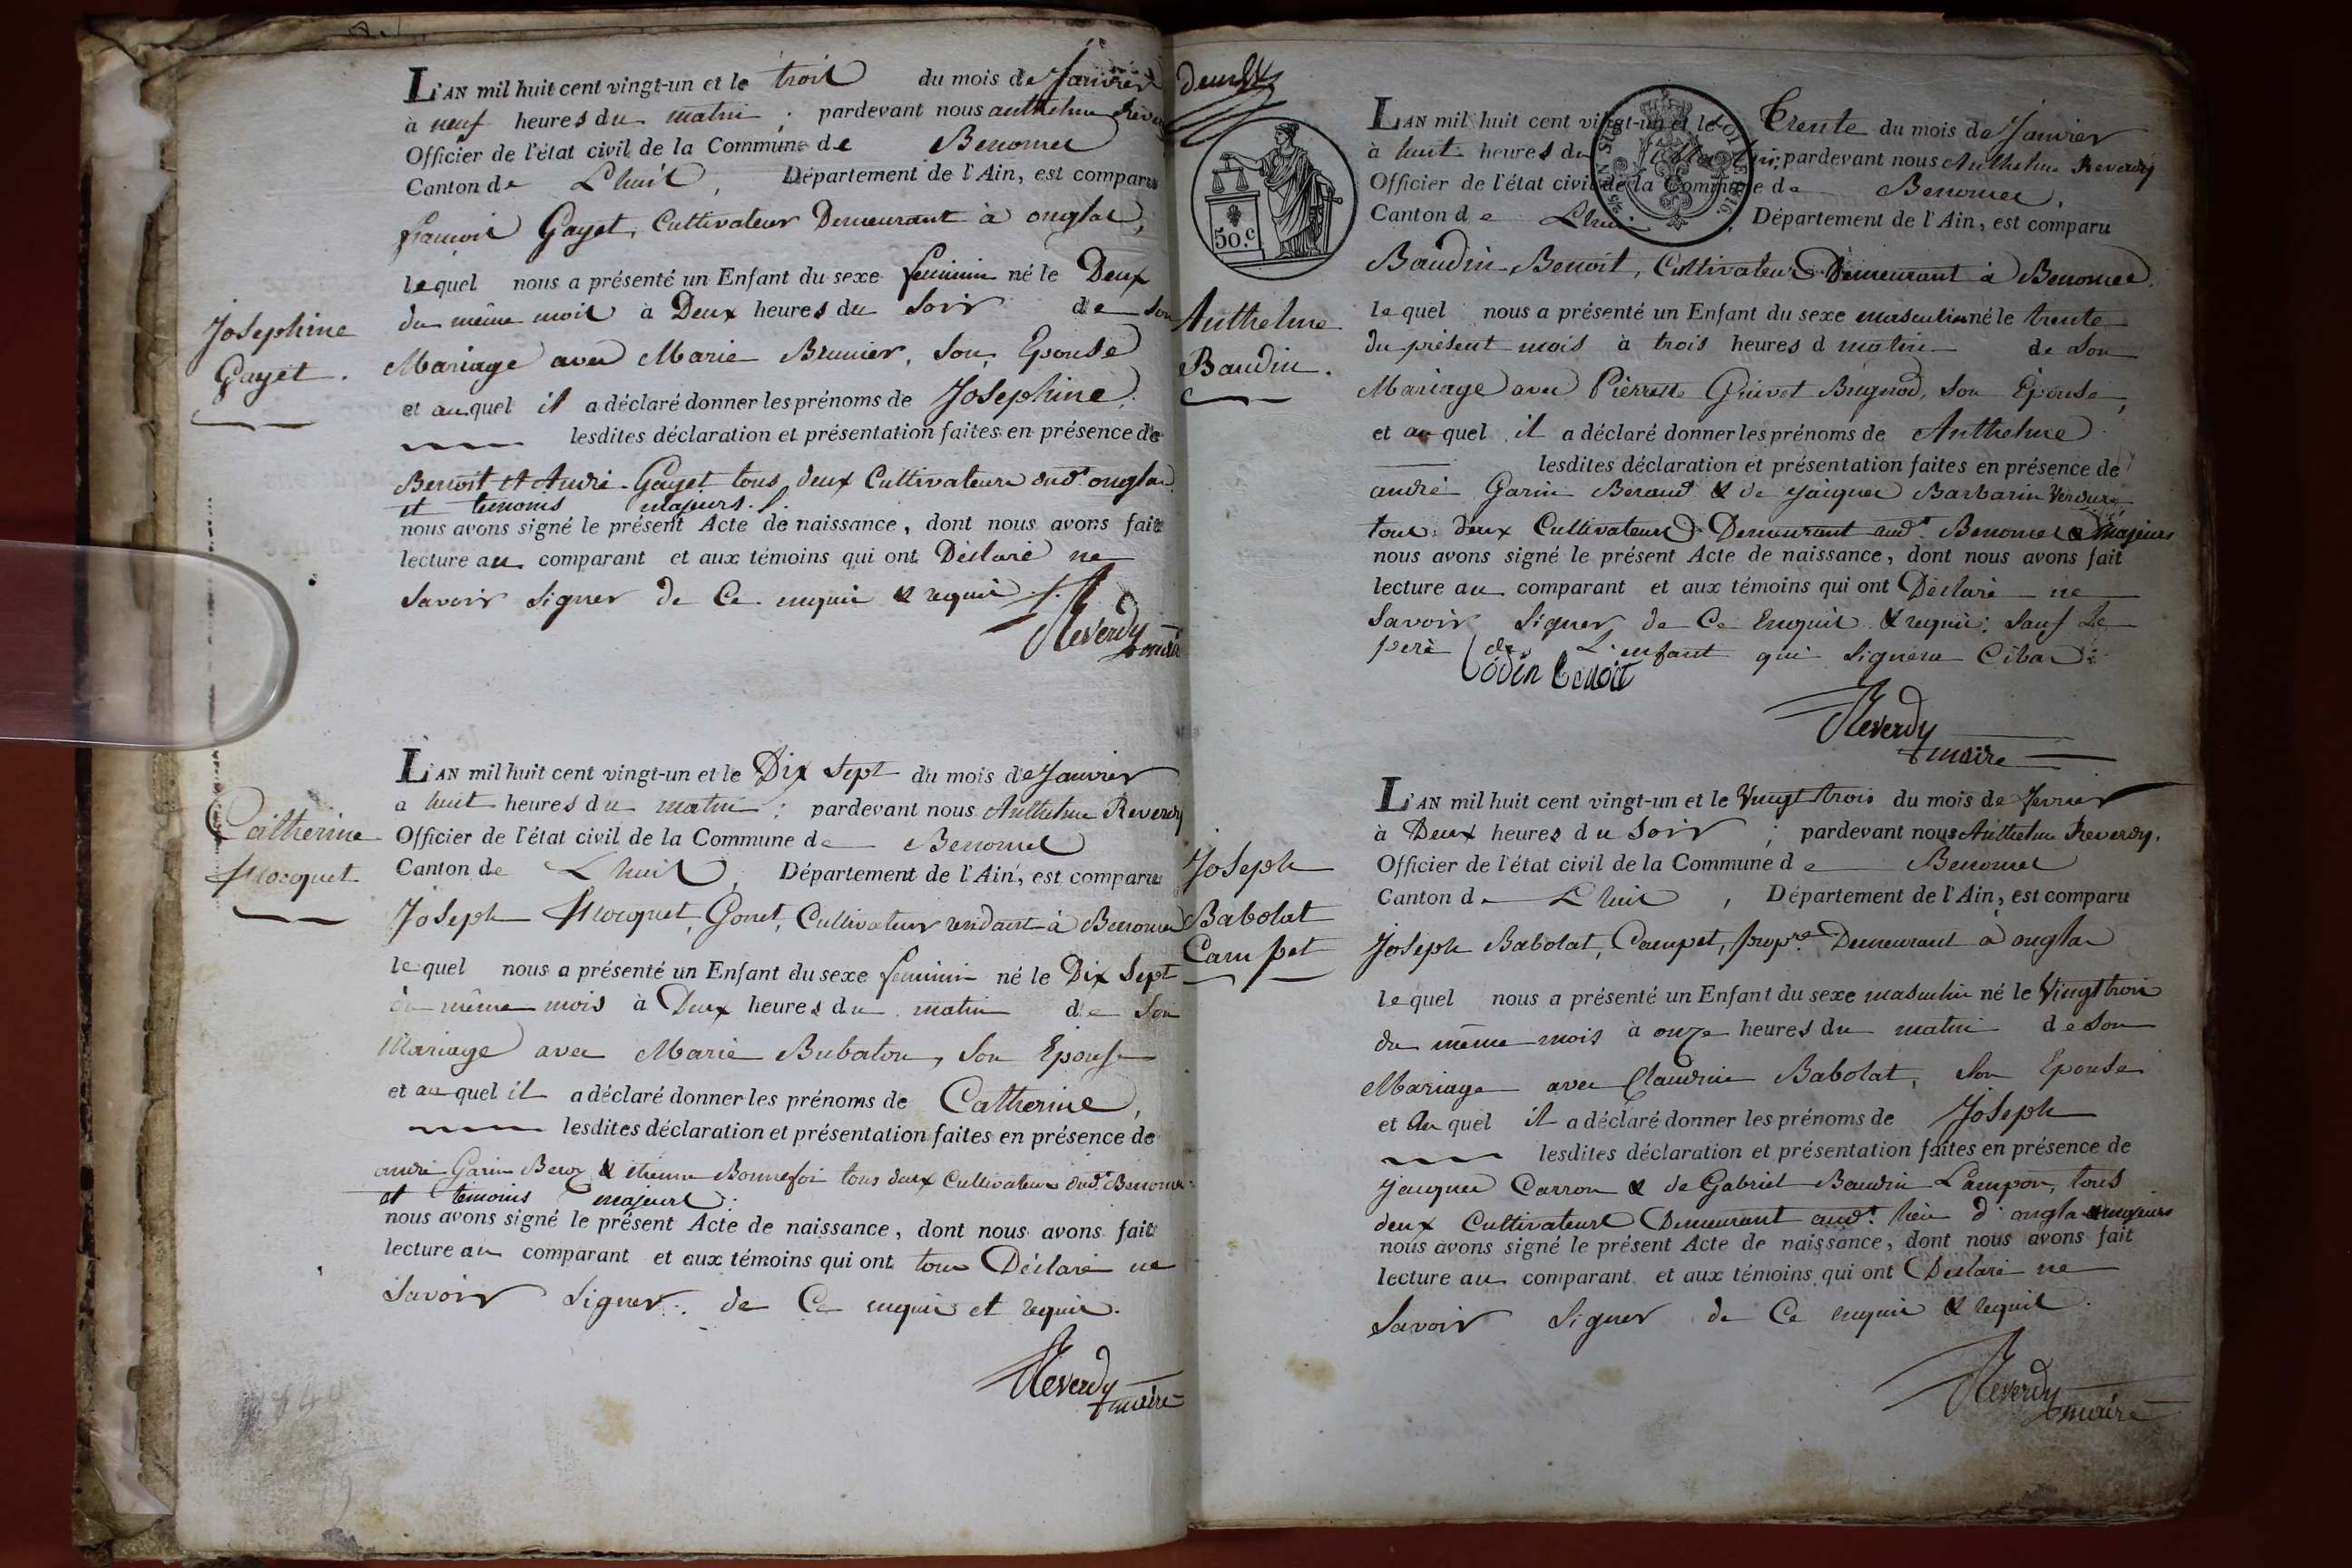 L'AN mil huit cent vingt-un et le trois du mois de Janvier
à neuf heures du matin ; pardevant nous anthelme Rever
Officier de l'état civil de la Commune de Benonce
Canton de Lhuis, Département de l'Ain, est comparu
françois Gayet, Cultivateur Demeurant à onglas,
lequel nous a présenté un Enfant du sexe feminin né le Deux
du même mois à Deux heures du Soir de son
Josephine
Gayet.
Mariage avec Marie Brunier, Son Epouse
et auquel il a déclaré donner les prénoms de Josephine,
lesdites déclaration et présentation faites en présence de
Benoit et André Gayet tous deux Cultivateurs dud.t onglas
et temoins majeurs.
nous avons signé le présent Acte de naissance, dont nous avons fait
lecture au comparant et aux témoins qui ont Déclaré ne
Savoir Signer de Ce enquis & requis.
Reverdy
maire
L'AN mil huit cent vingt-un et le Dix Sept du mois de Janvier
a huit heures du matin ; pardevant nous Anthelme Reverdy
Catherine
Mocquet
Officier de l'état civil de la Commune de Benonce
Canton de Lhuis, Département de l'Ain, est comparu
Joseph Mocquet, Gonet, Cultivateur residant à Benonce
lequel nous a présenté un Enfant du sexe feminin né le Dix Sept
du même mois à Deux heures du matin de Son
Mariage avec Marie Bubaton, Son Epouse
et auquel il a déclaré donner les prénoms de Catherine,
lesdites déclaration et présentation faites en présence de
andré Garin Beroz & etienne Bonnefoi tous deux Cultivateurs dud.t Benonce
et temoins majeurs.
nous avons signé le présent Acte de naissance, dont nous avons fait
lecture au comparant et aux témoins qui ont tous Déclaré ne
Savoir Signer. de Ce enquis et requis.
Reverdy
maire
deux
50.c
L'AN mil huit cent vingt-un et le Trente du mois de Janvier
à huit heures du matin; pardevant nous Anthelme Reverdy
Officier de l'état civil de la Commune de Benonce,
Canton de Lhuis, Département de l'Ain, est comparu
LOI DE 1816.
Baudin Benoit, Cultivateur Demeurant à Benonce,
Anthelme
Baudin.
lequel nous a présenté un Enfant du sexe masculin né le trente
du présent mois à trois heures d matin de son
Mariage avec Pierrette Guivet Brignod, Son Epouse,
et auquel il a déclaré donner les prénoms de Anthelme
lesdites déclaration et présentation faites en présence de
andré Garin Beraud & de jacques Barbarin Verdure
tous deux Cultivateurs Demeurant aud.t Benonce & majeurs
nous avons signé le présent Acte de naissance, dont nous avons fait
lecture au comparant et aux témoins qui ont Déclaré ne
Savoir Signer de Ce Enquis & requis. Sauf Le
père de L'enfant qui Signera
bodin benoit
Reverdy
maire
L'AN mil huit cent vingt-un et le Vingt trois du mois de fevrier
à Deux heures du Soir ; pardevant nous Anthelme Reverdy.
Officier de l'état civil de la Commune de Benonce
Canton de Lhuis, Département de l'Ain, est comparu
Joseph
Babolat
Campet
Joseph Babolat, Campet, prop.re Demeurant à onglas
lequel nous a présenté un Enfant du sexe masculin né le Vingt trois
du même mois à onze heures du matin de Son
Mariage avec Claudine Babolat, Son Epouse
et Au quel il a déclaré donner les prénoms de Joseph
lesdites déclaration et présentation faites en présence de
jacques Carron & de Gabriel Baudin Lampon, tous
deux Cultivateurs Demeurant aud.t lieu d'onglas & majeurs
nous avons signé le présent Acte de naissance, dont nous avons fait
lecture au comparant et aux témoins qui ont Déclaré ne
Savoir Signer de Ce enquis & requis.
Reverdy
maire